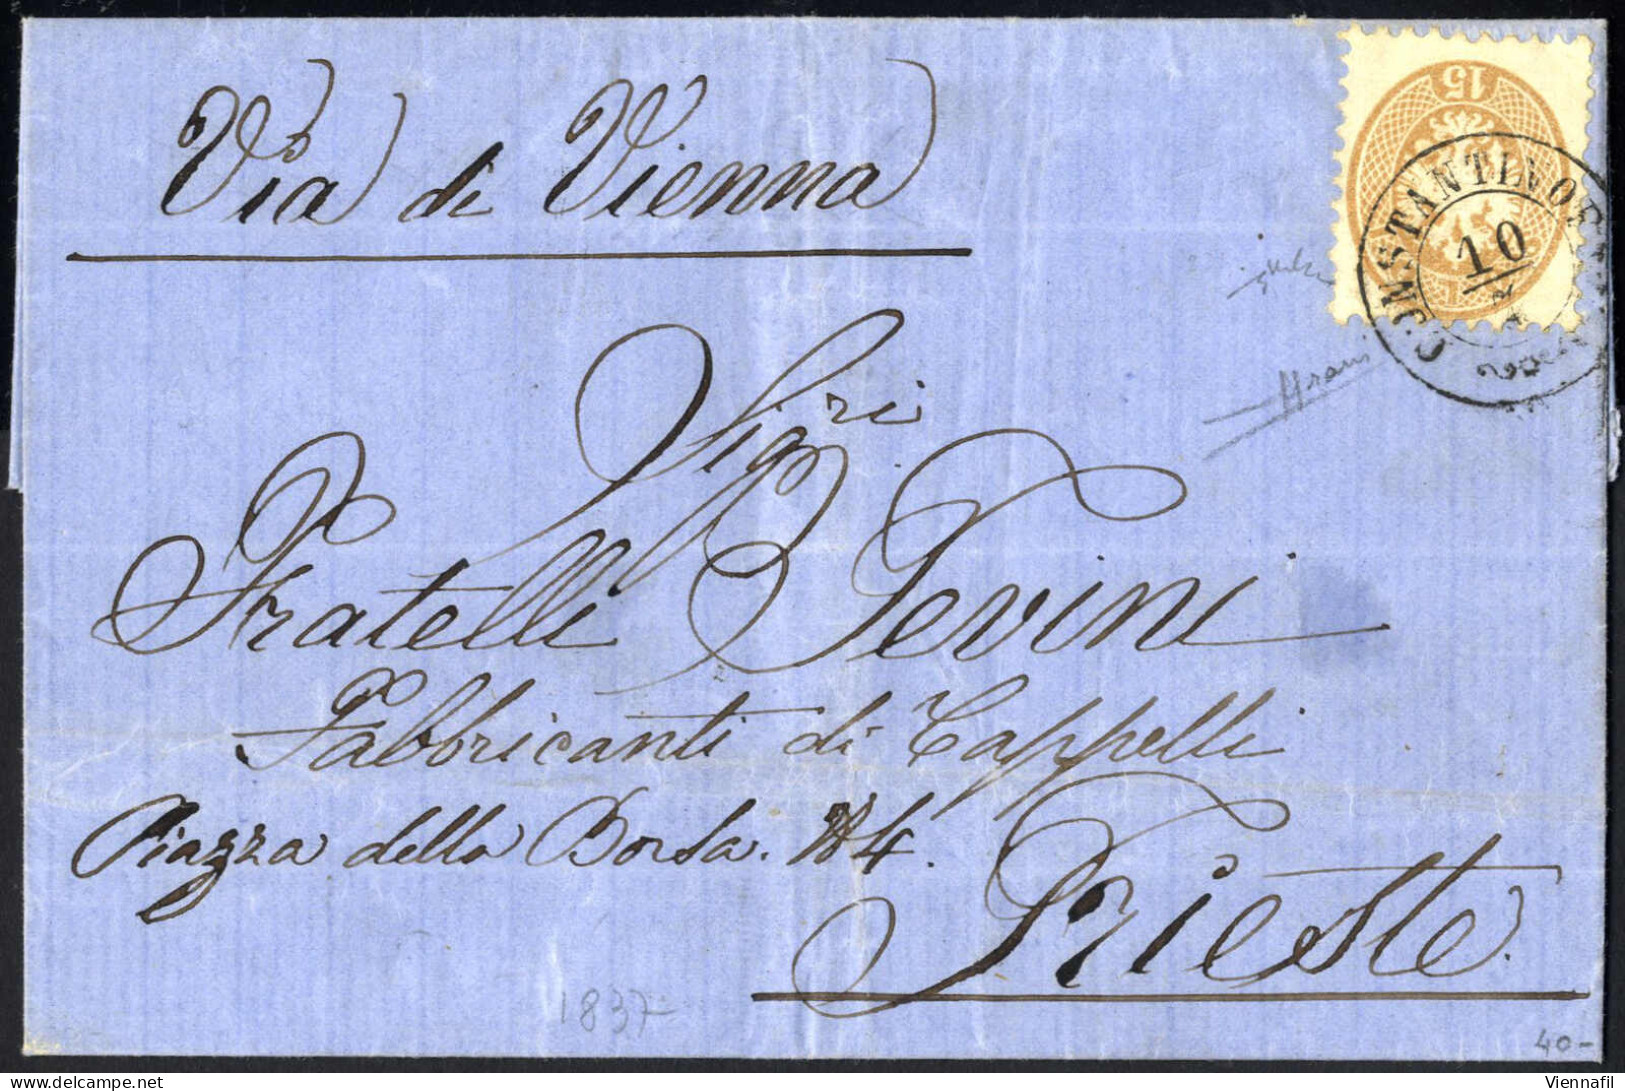 Via di Vienna
15
CONSTANTINOPEL
10
Sigri
Fratelli Pevini
Fabbricanti di Cappelli
Piazza della Borsa. N4.
Trieste.
1837
40-
www.delcampe.net
Viennafil